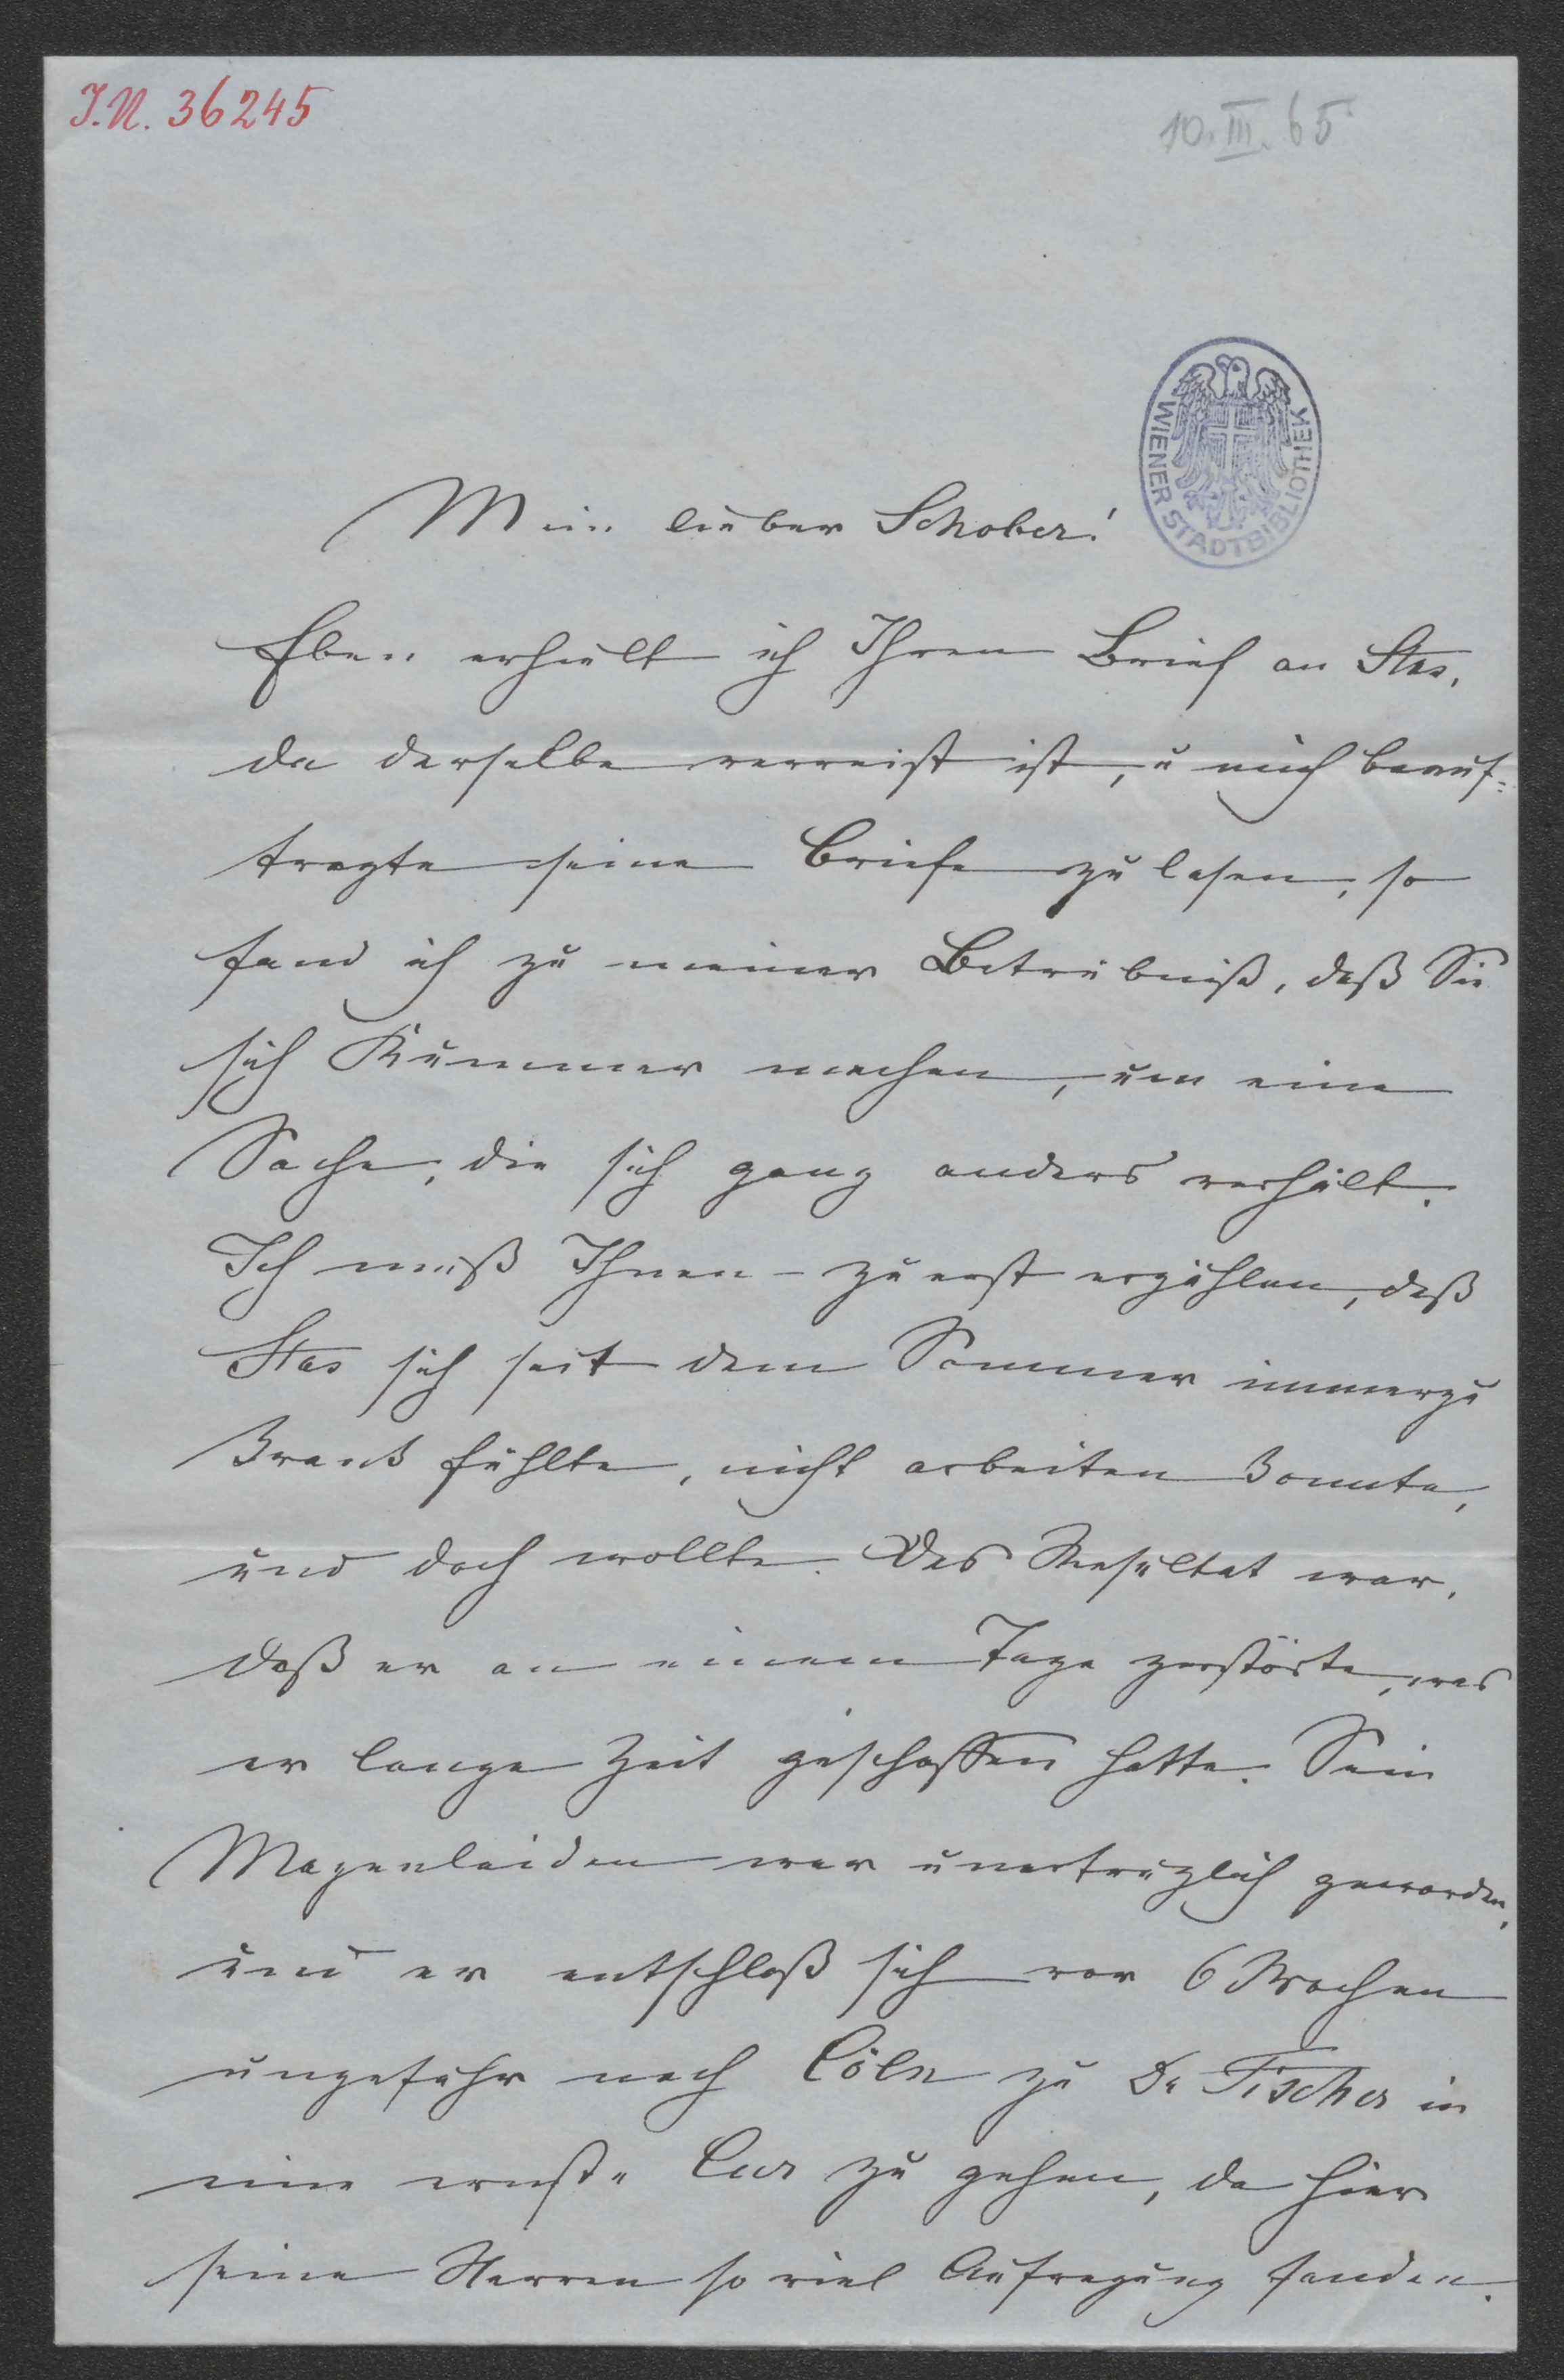 J.N. 36245
10.III.65
WIENER STADTBIBLIOTHEK
Mein lieber Schober!
Eben erhielt ich Ihren Brief an Stas,
da derselbe verreist ist, u mich beauf-
tragte seine Briefe zu lesen, so
fand ich zu meiner Betrübniß, daß Sie
sich Kummer machen, um eine
Sache, die sich ganz anders verhält.
Ich muß Ihnen zuerst erzählen, daß
Stas sich seit dem Sommer immerzu
krank fühlte, nicht arbeiten konnte,
und doch wollte. Das Resultat war,
daß er an einem Tage zerstörte, was
er lange Zeit geschaffen hatte. Sein
Magenleiden war unerträglich geworden,
und er entschloß sich vor 6 Wochen
ungefähr nach Cöln zu Dr Fischer in
eine ernste Cur zu gehen, da hier
seine Nerven so viel Aufregung fanden.